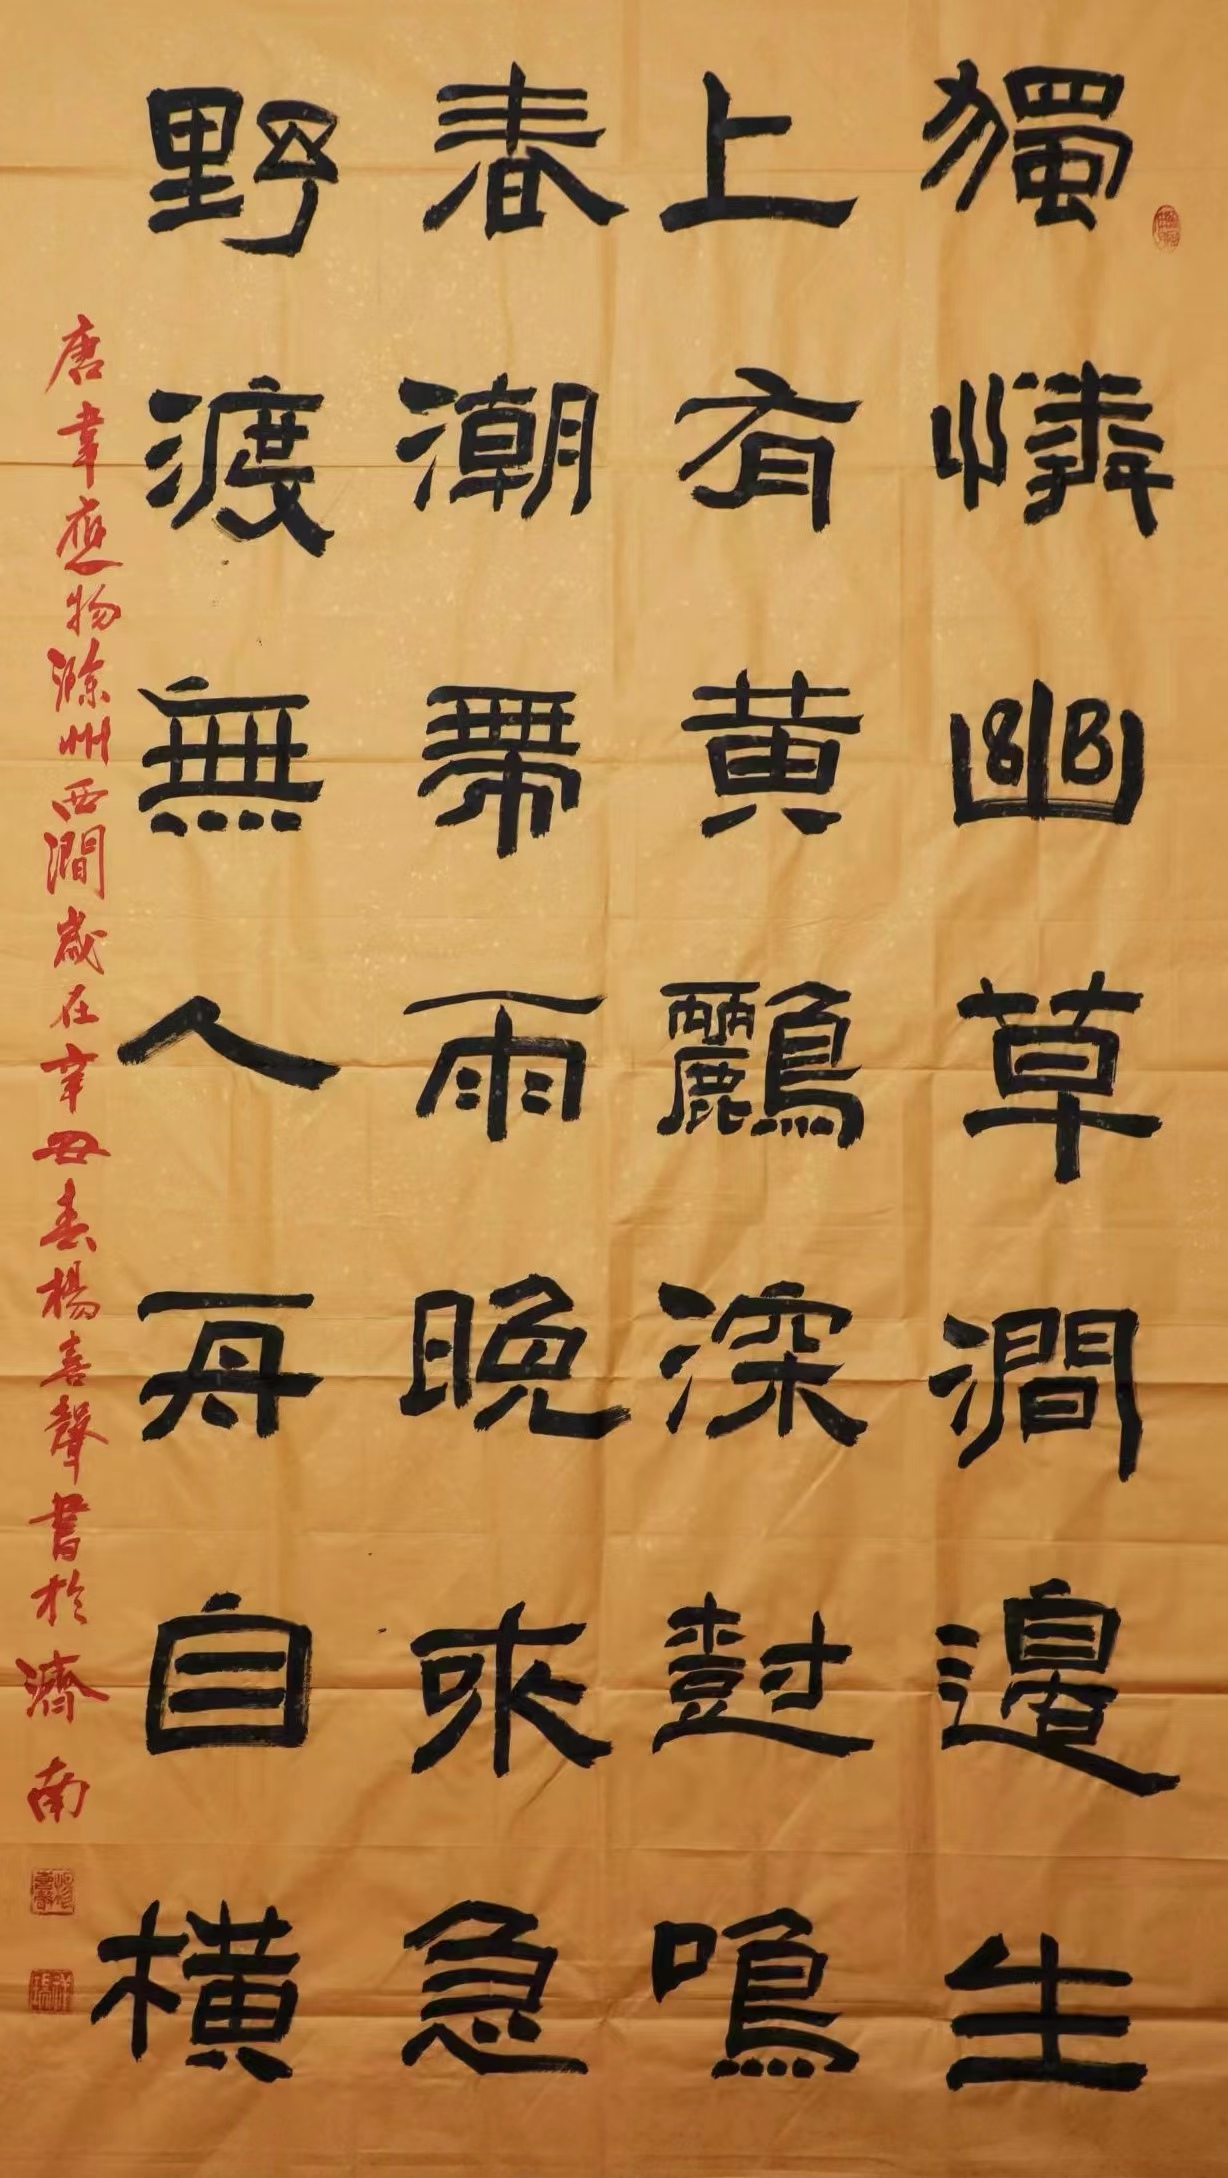 獨憐幽草澗邊生
上有黄鸝深樹鳴
春潮帶雨晚來急
野渡無人舟自橫
唐韋應物滁州西澗歲在辛丑春楊喜聲書於濟南